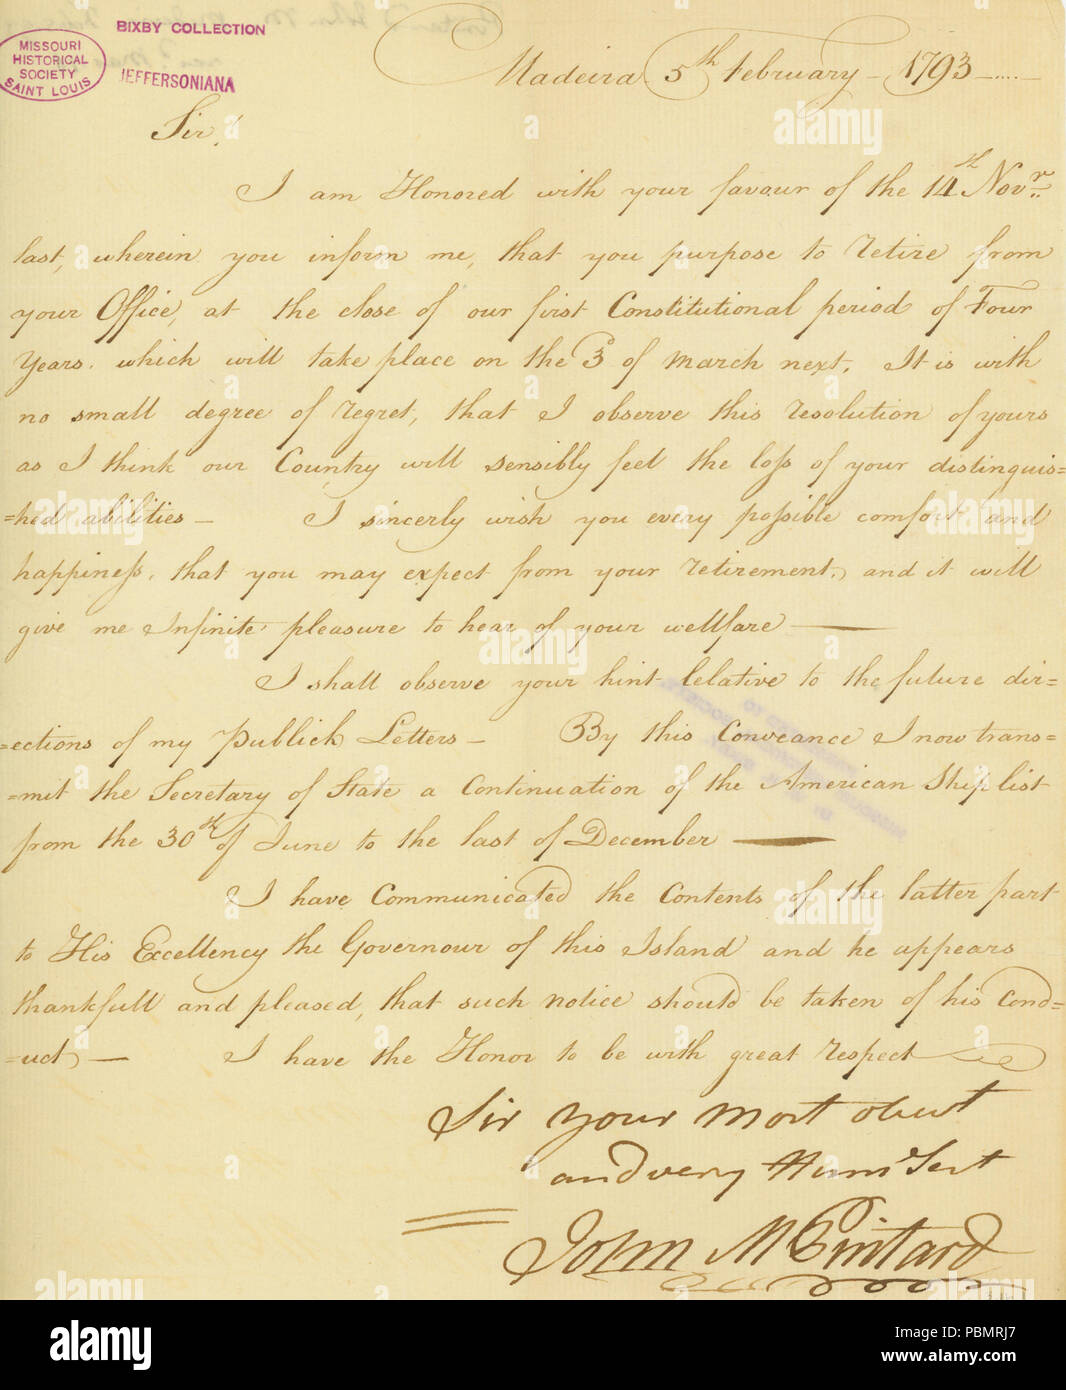 BIXBY COLLECTION
MISSOURI
HISTORICAL
SOCIETY
SAINT LOUIS
JEFFERSONIANA
Madeira 5th February 1793
Sir,
I am Honored with your favour of the 14th Novr
last, wherein you inform me, that you purpose to retire from
your Office, at the close of our first Constitutional period of Four
Years. which will take place on the 3 of March next. It is with
no small degree of regret, that I observe this resolution of yours
as I think our Country will sensibly feel the loss of your distinguis=
=hed abilities — I sincerly wish you every possible comfort and
happiness, that you may expect from your retirement, and it will
give me Infinite pleasure to hear of your wellfare —
I shall observe your hint relative to the future dir=
=ections of my Publick Letters — By this Conveance I now trans=
=mit the Secretary of State a Continuation of the American Ship list
from the 30th of June to the last of December —
I have Communicated the Contents of the latter part
to His Excellency the Governour of this Island and he appears
thankfull and pleased, that such notice should be taken of his Cond=
=uct — I have the Honor to be with great respect
Sir your most obent
and very Hum Sert
John M Pintard
alamy
alamy
alamy
alamy
alamy
alamy
alamy
alamy
alamy
Image ID: PBMRJ7
www.alamy.com